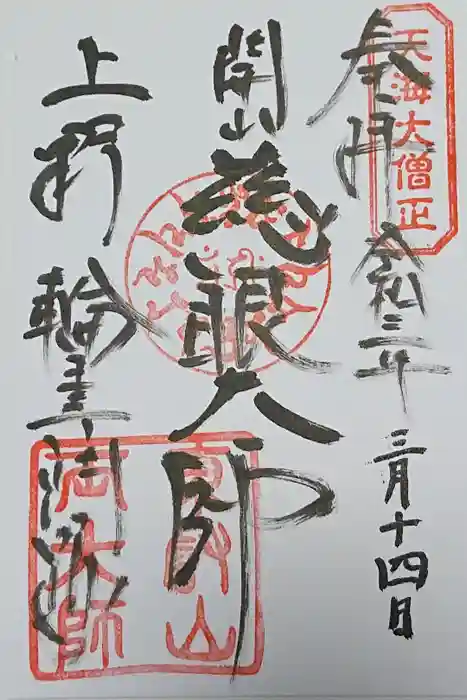 天海大僧正
奉拝 令和三年 三月十四日
開山 慈眼大師
上野 輪王寺
東叡山
両大師